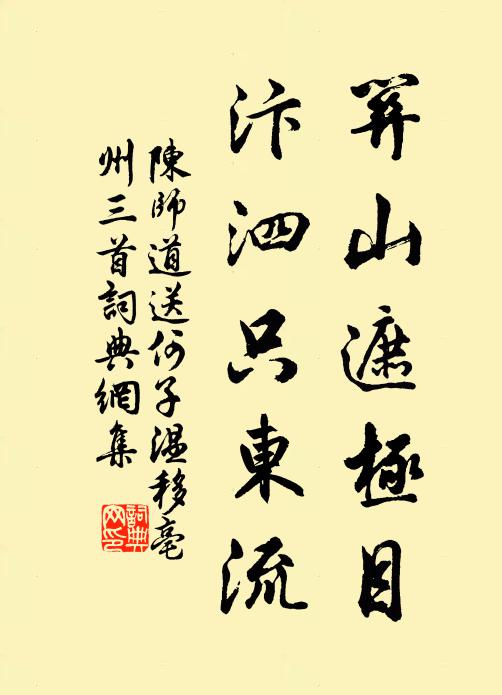 關山遮極目
汴泗只東流
陳師道送何子溫移亳
州三首詞典網集
詞典
网印